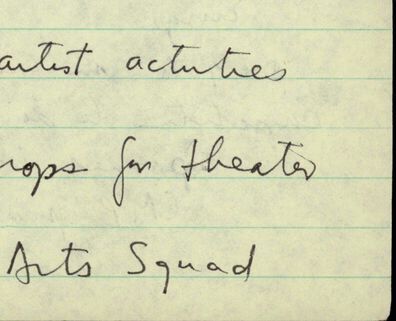 artist activities
rops for theater
Arts Squad